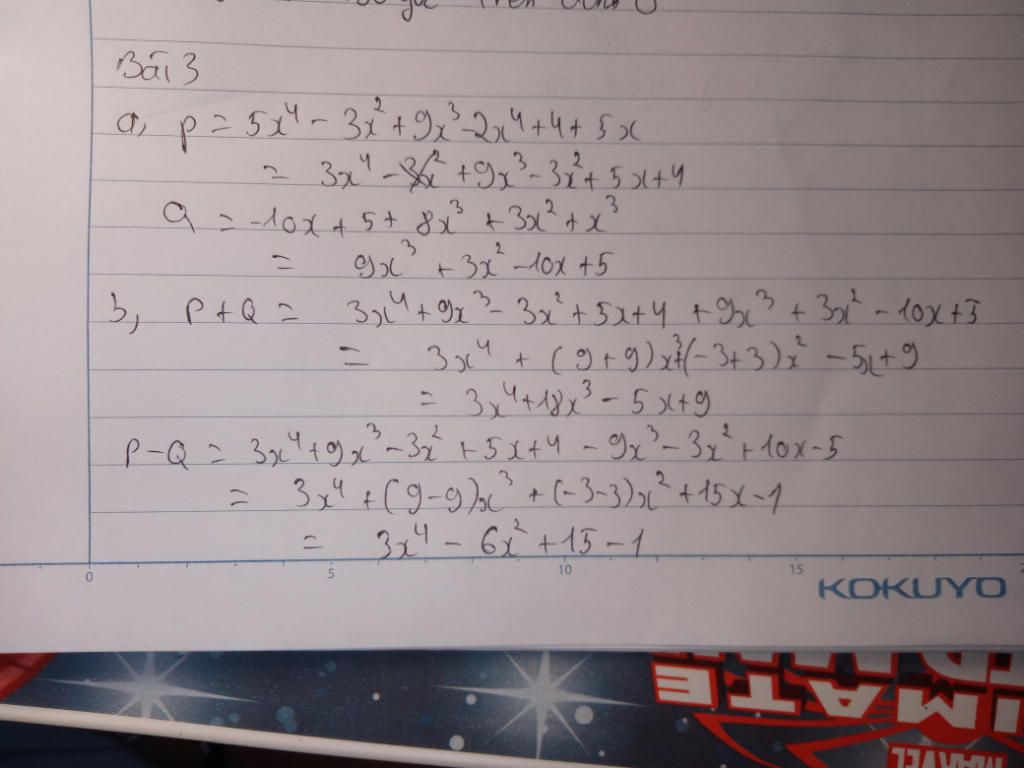 Bài 3
a, P = 5x⁴ - 3x² + 9x³ - 2x⁴ + 4 + 5x
= 3x⁴ - 3x² + 9x³ - 3x² + 5x + 4
Q = -10x + 5 + 8x³ + 3x² + x³
= 9x³ + 3x² - 10x + 5
b, P + Q = 3x⁴ + 9x³ - 3x² + 5x + 4 + 9x³ + 3x² - 10x + 5
= 3x⁴ + (9 + 9)x³ + (-3 + 3)x² - 5x + 9
= 3x⁴ + 18x³ - 5x + 9
P - Q = 3x⁴ + 9x³ - 3x² + 5x + 4 - 9x³ - 3x² + 10x - 5
= 3x⁴ + (9 - 9)x³ + (-3 - 3)x² + 15x - 1
= 3x⁴ - 6x² + 15 - 1
0 5 10 15
KOKUYO
IMATE
MARVEL